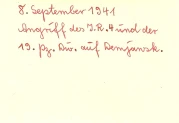 8. September 1941
Angriff des J.R. 4 und der
19. Pz. Div. auf Demjansk.